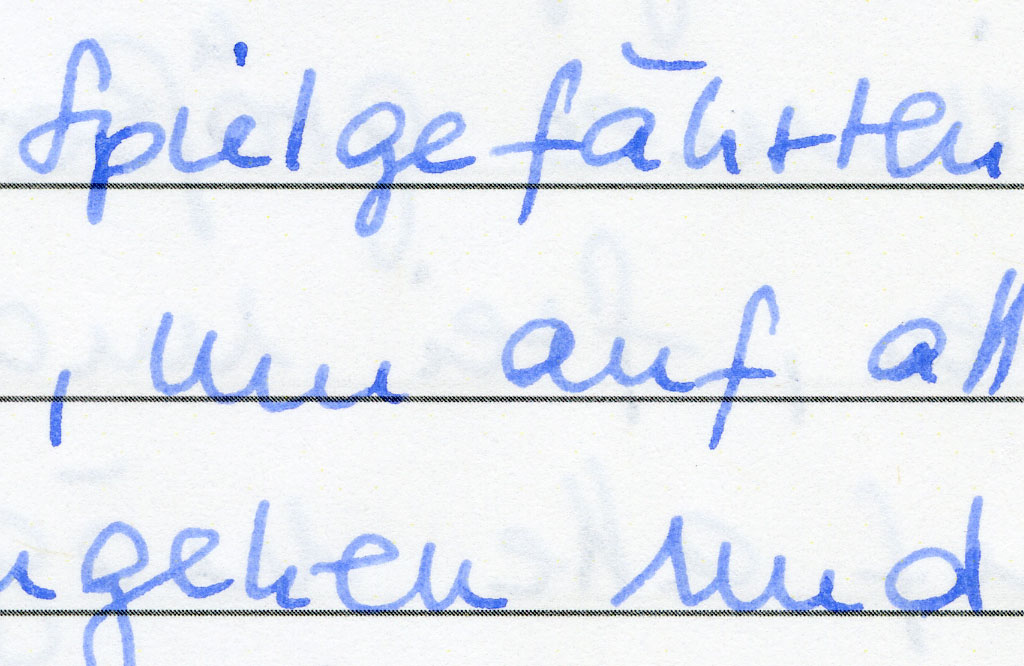 Spielgefährten
, um auf all
ngehen und